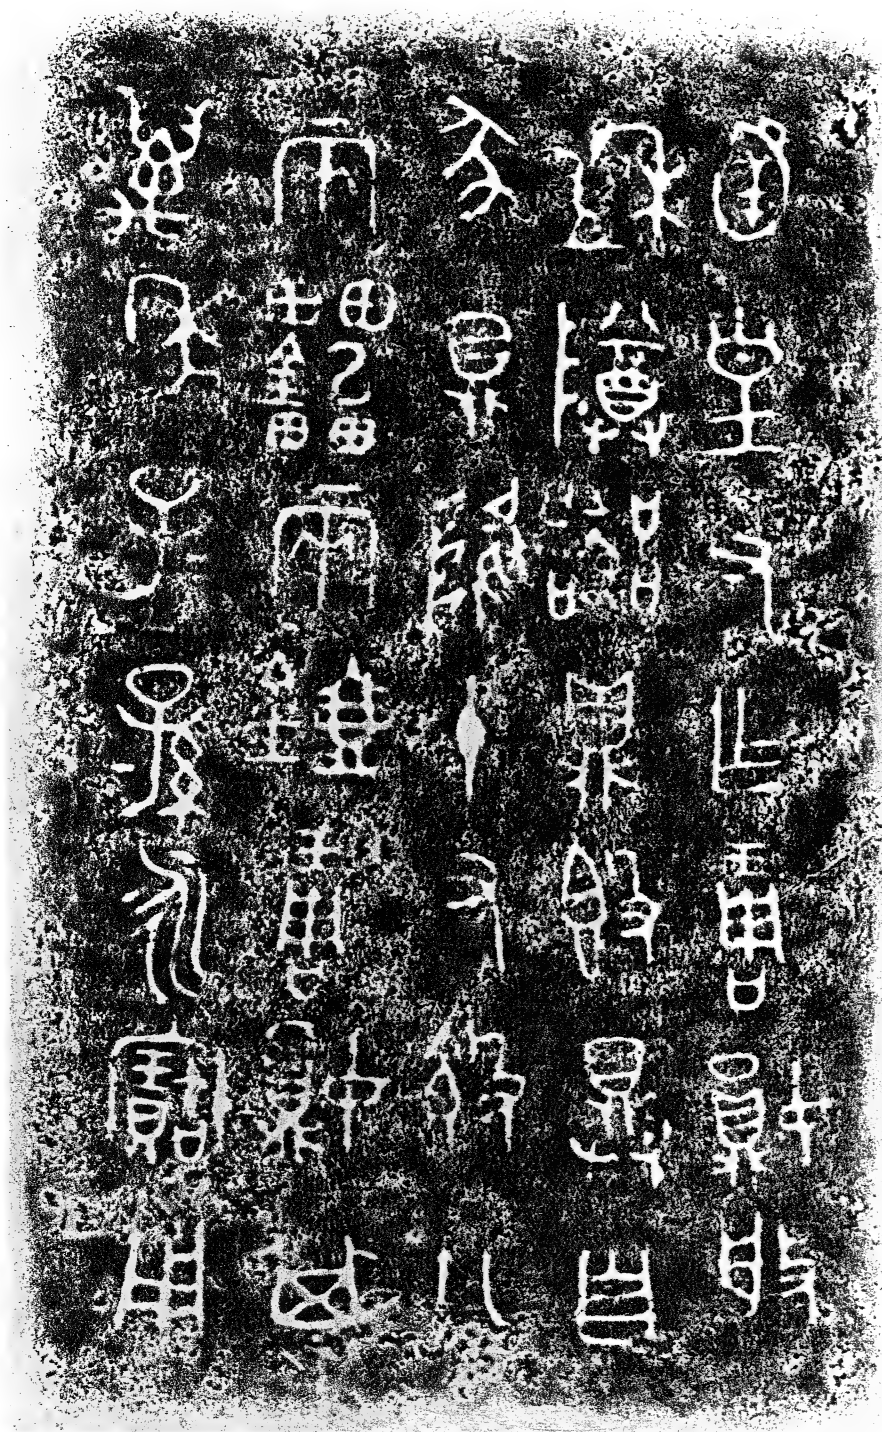 函皇父乍琱娟般
盉尊器鼎𣪘具自
豕鼎降十又𣪘八
兩罍兩壺琱娟其
萬年子=孫=永寶用